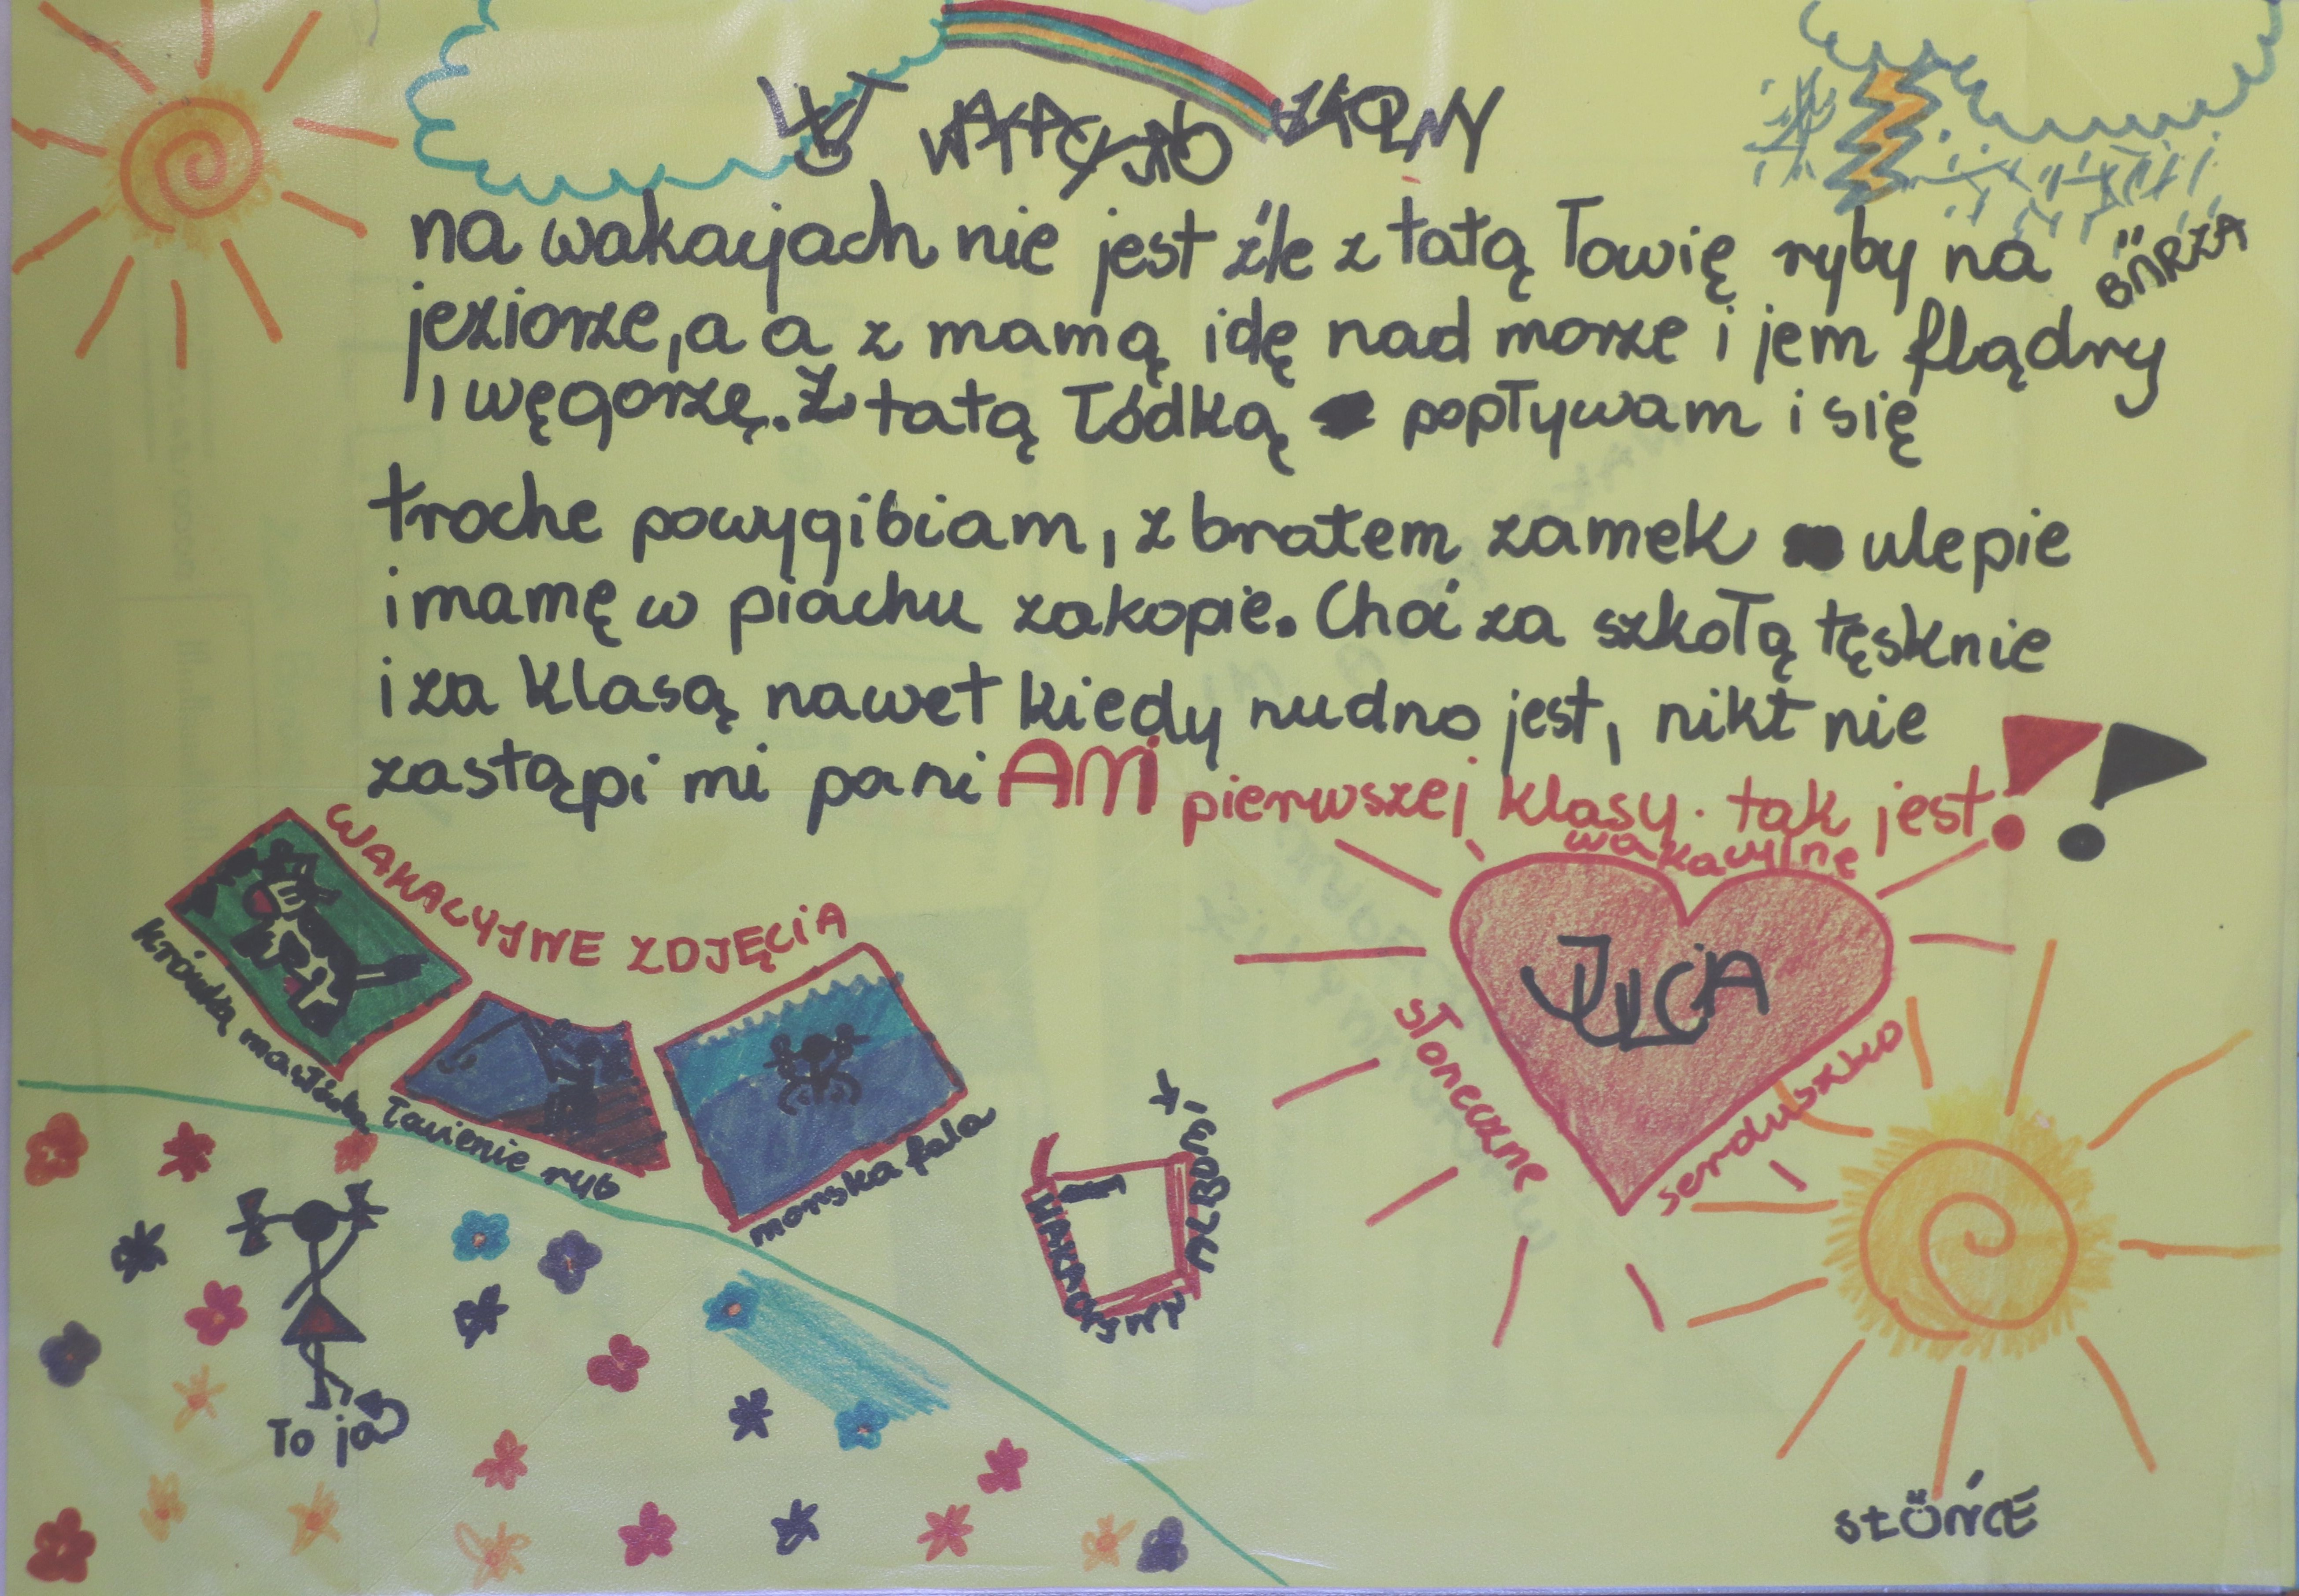 LIST WAKACYJNO SZKOLNY
na wakacjach nie jest źle z tatą łowię ryby na
BURZA
jeziorze, a a z mamą idę nad morze i jem flądry
i węgorzę. Z tatą łódką popływam i się
troche powygibiam, z bratem zamek ulepie
i mamę w piachu zakopie. Choć za szkołą tęsknie
i za klasą nawet kiedy nudno jest, nikt nie
zastąpi mi pani AMI pierwszej klasy. tak jest!!
WAKACYJNE ZDJĘCIA
krówką mastówką
łowienie ryb
morska fala
WAKACYJNY
ALBUMI-K
wakacyjne
JULCIA
słoneczne
serduszko
To ja
SŁOŃCE